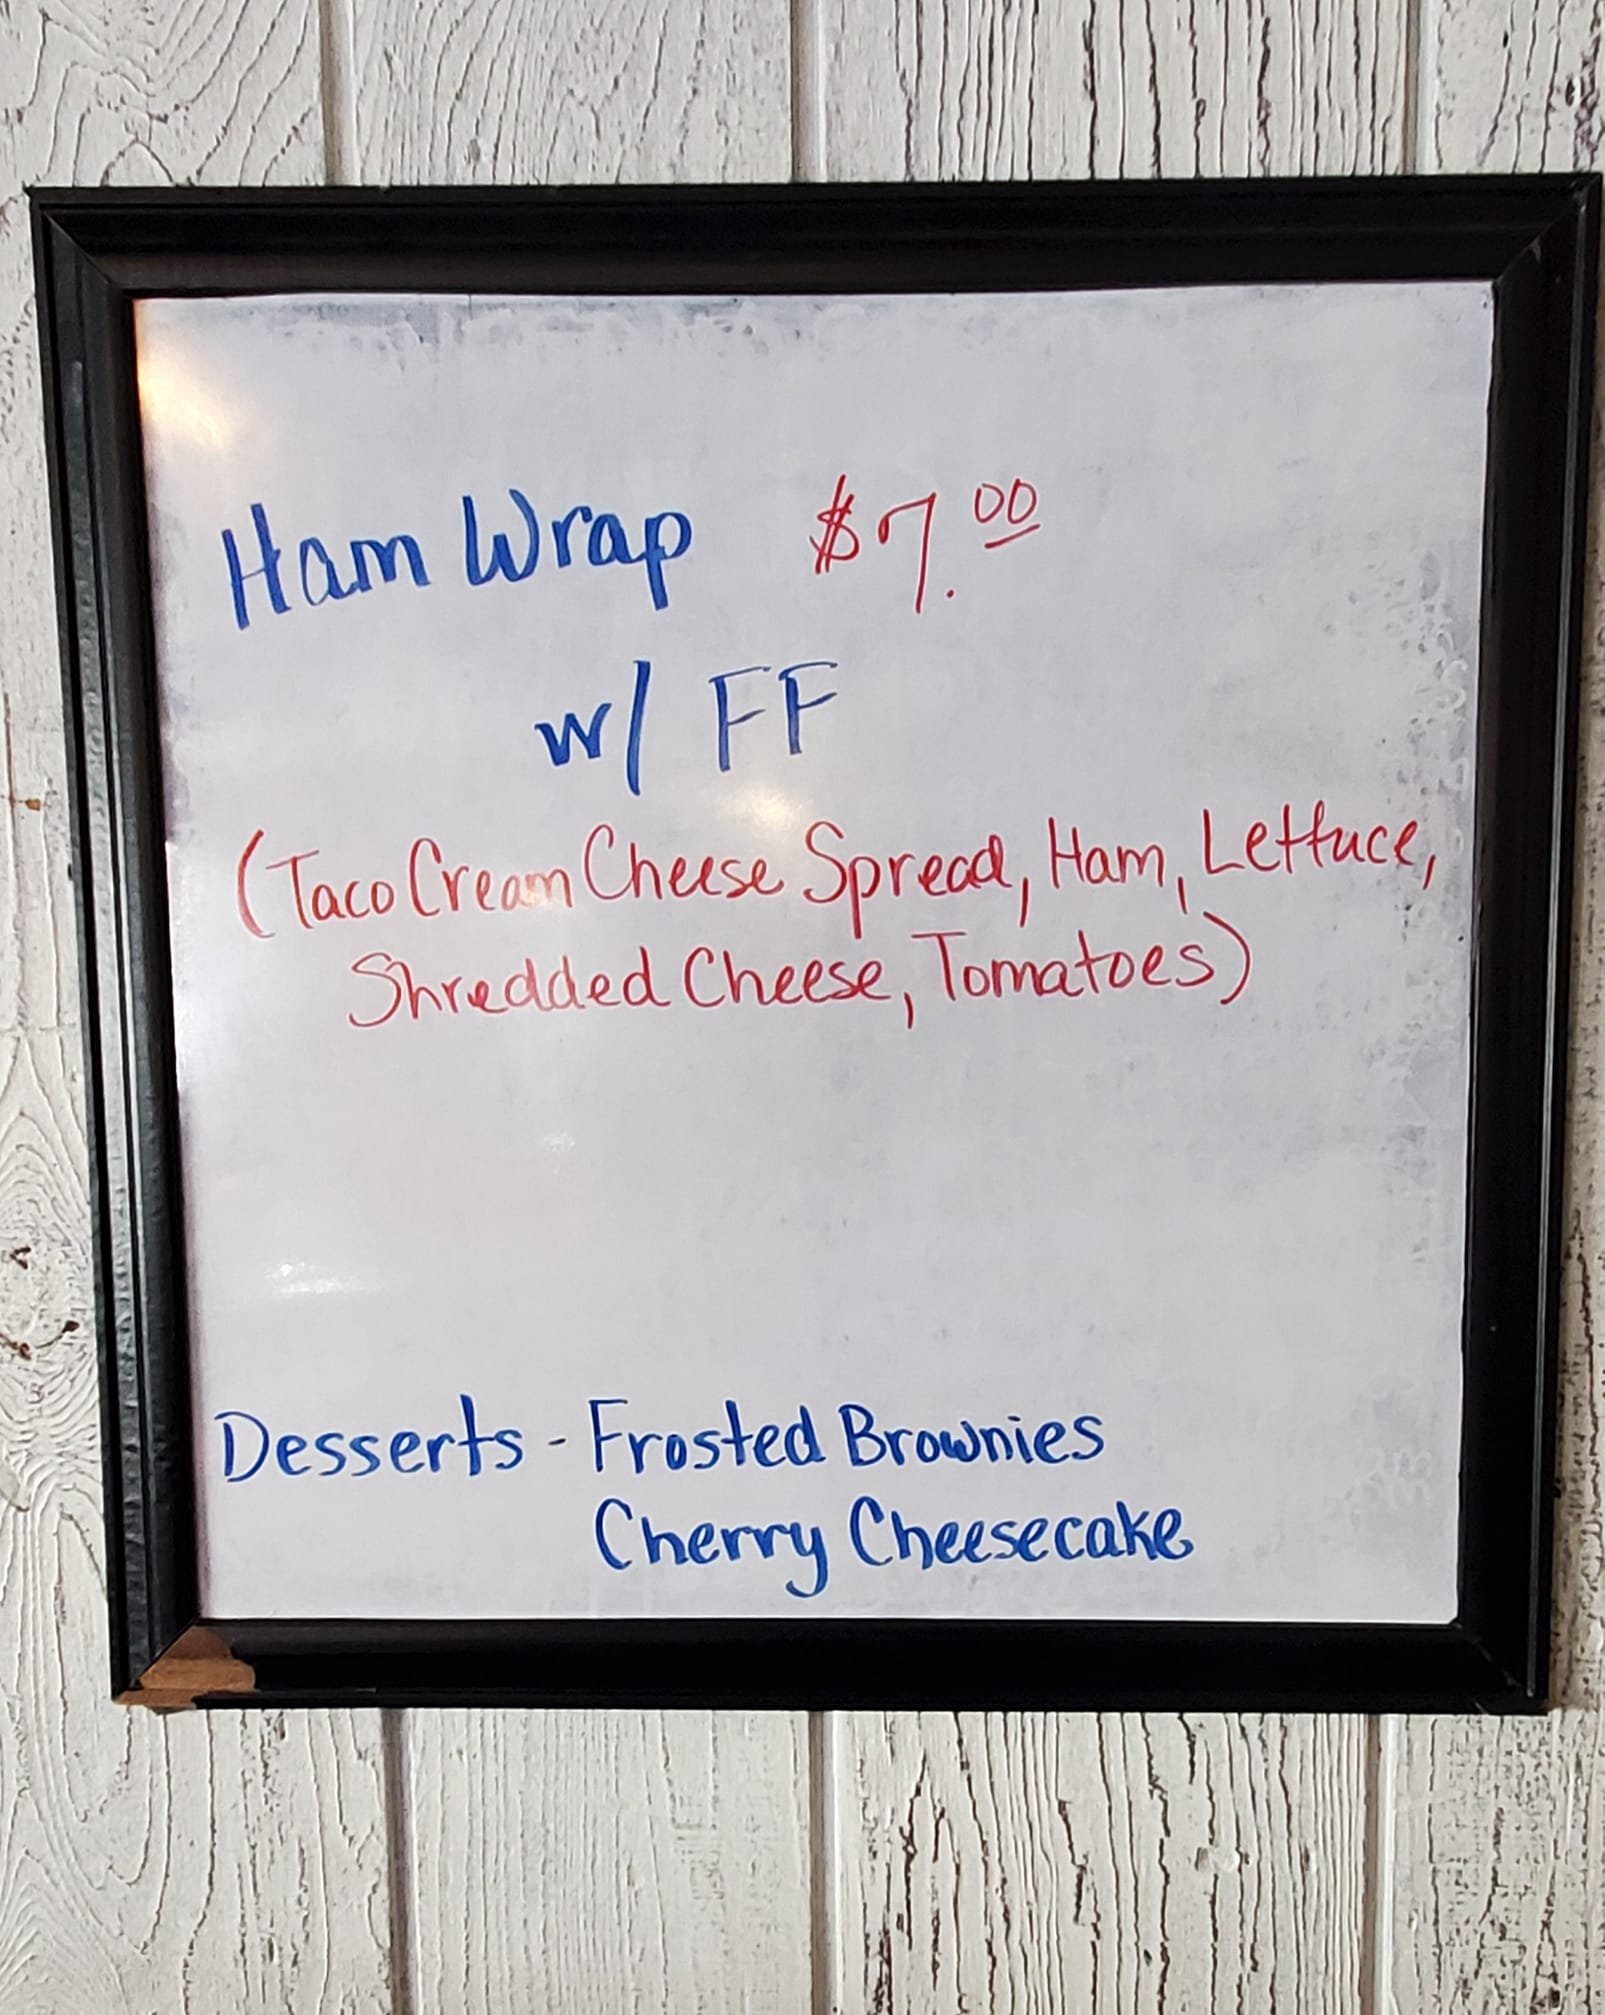 Ham Wrap $7.00
w/ FF
(Taco Cream Cheese Spread, Ham, Lettuce,
Shredded Cheese, Tomatoes)
Desserts - Frosted Brownies
Cherry Cheesecake